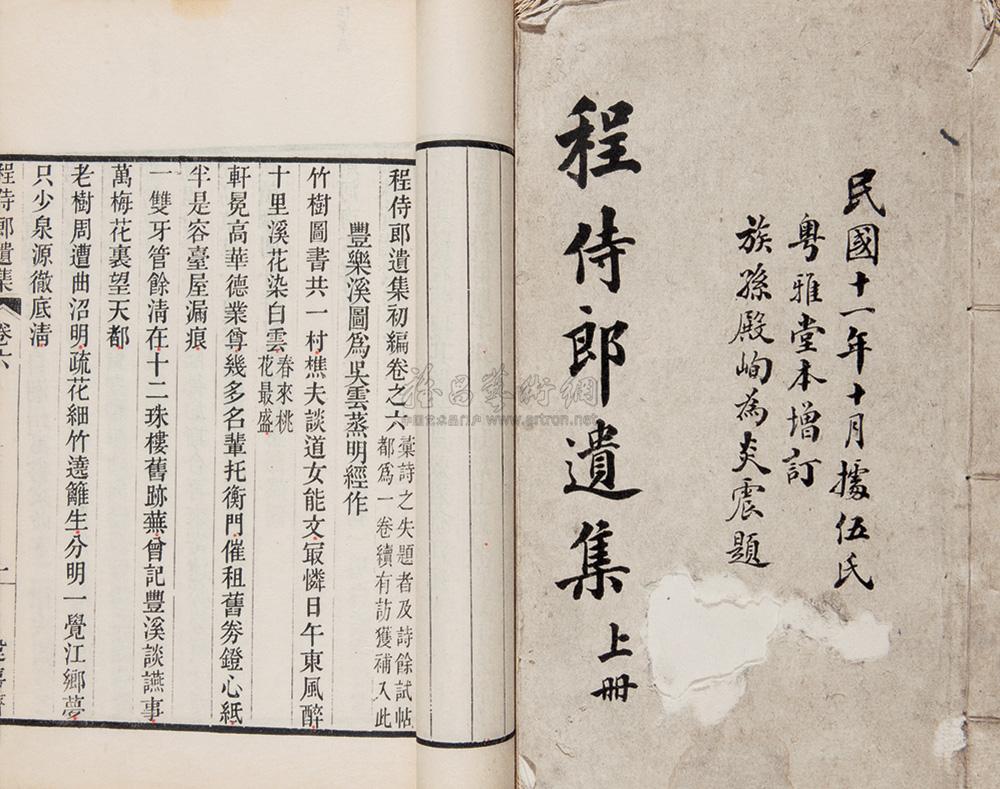 民國十一年十月據伍氏
粵雅堂本增訂
族孫殿峋為炎震題
程侍郎遺集
上冊
程侍郎遺集初編卷之六
藁詩之失題者及詩餘試帖
都爲一卷續有訪獲補入此
豐樂溪圖爲吳雲蒸明經作
竹樹圖書共一村樵夫談道女能文㝡憐日午東風醉
十里溪花染白雲
春來桃
花最盛
軒冕高華德業尊幾多名輩托衡門催租舊券鐙心紙
半是容臺屋漏痕
一雙牙管餘淸在十二珠樓舊跡蕪曾記豐溪談讌事
萬梅花裏望天都
老樹周遭曲沼明疏花細竹遶籬生分明一覺江鄉夢
只少泉源徹底淸
程侍郎遺集
卷六
一
www.artron.net